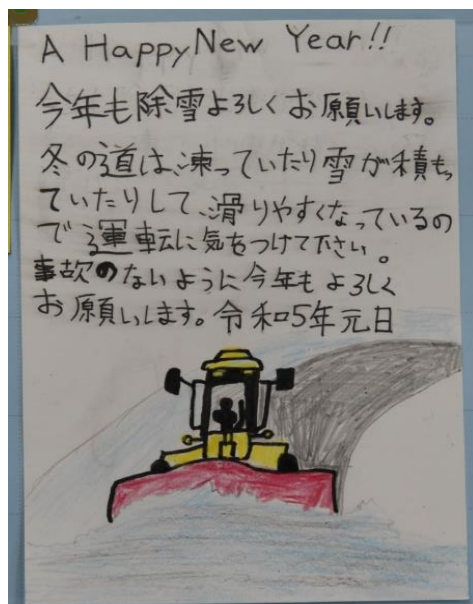 A Happy New Year!!
今年も除雪よろしくお願いします。
冬の道は、凍っていたり雪が積もっ
ていたりして、滑りやすくなっているの
で運転に気をつけて下さい。
事故のないように今年もよろしく
お願いします。令和5年元日